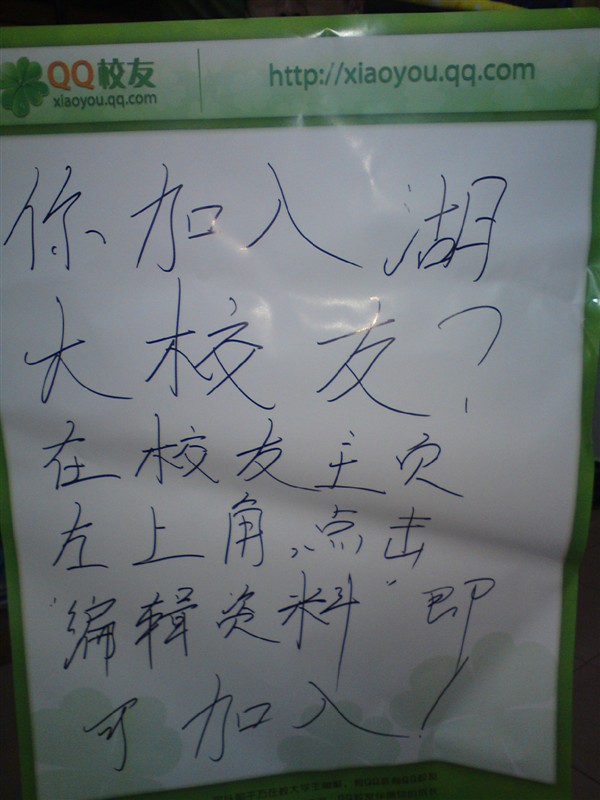 QQ校友
xiaoyou.qq.com
http://xiaoyou.qq.com
你加入湖
大校友?
在校友主页
左上角,点击
"编辑资料"即
可加入!